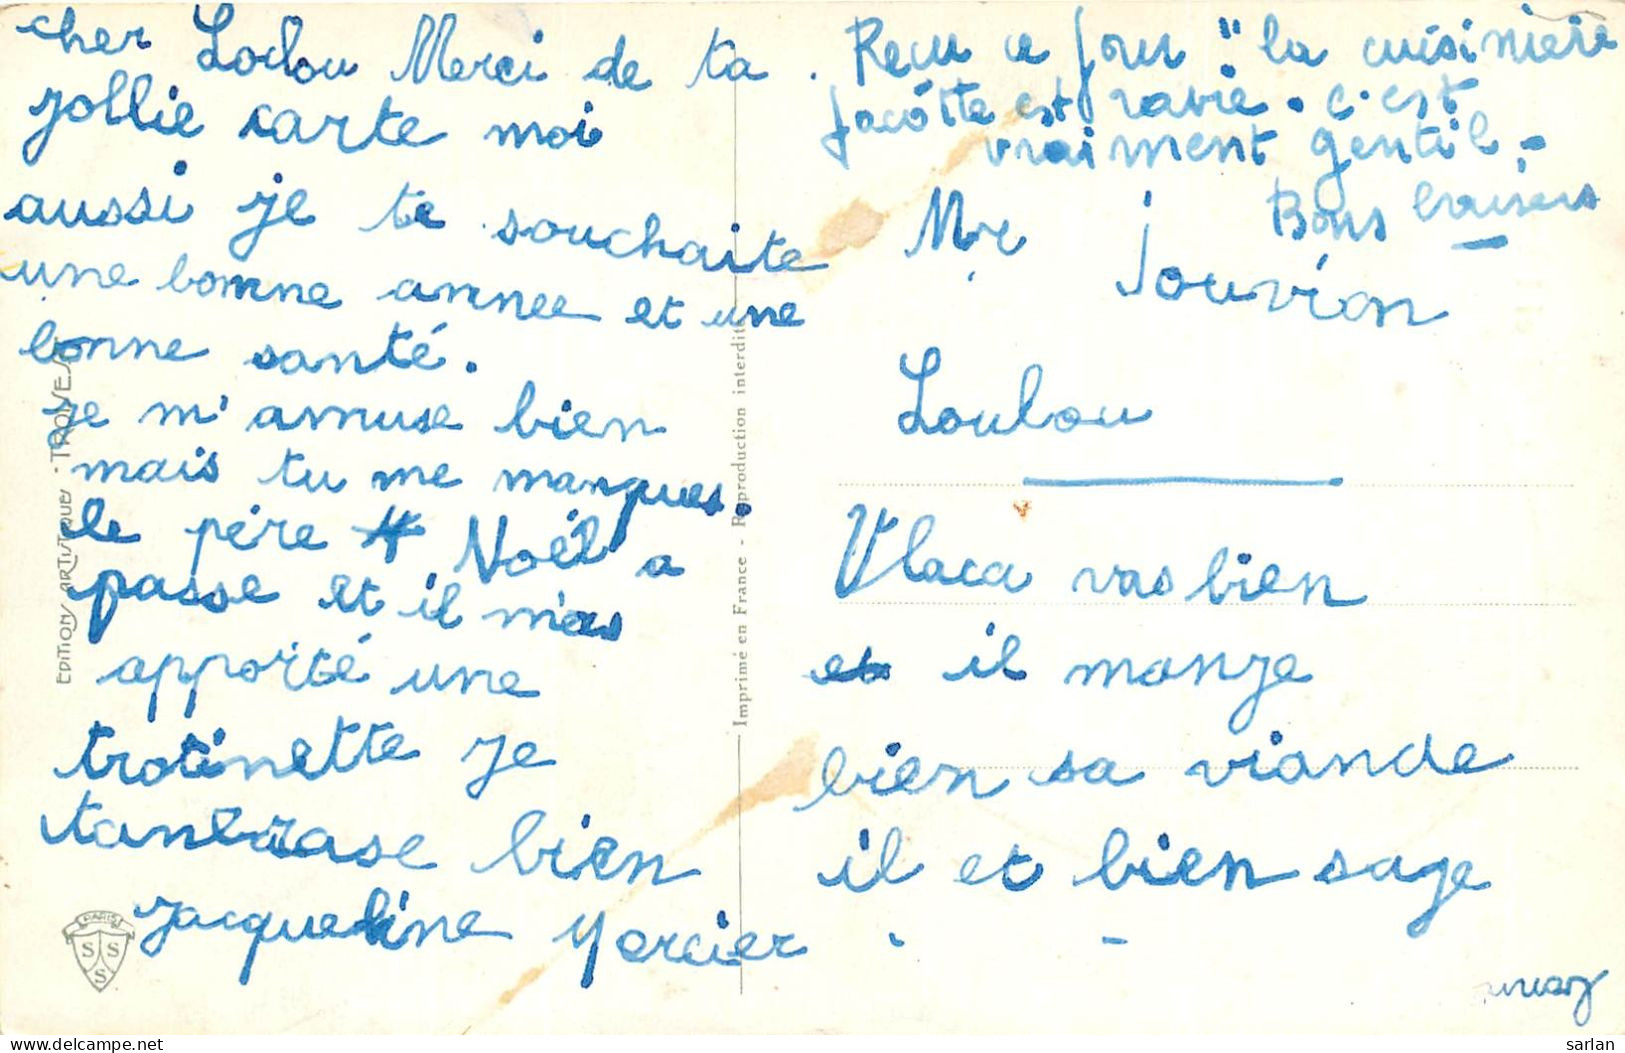 cher Loulou Merci de ta
jollie carte moi
aussi je te souchaite
une bonne annee et une
bonne santé.
je m'amuse bien
mais tu me manques.
le père Noël a
passe et il m'as
apporté une
trotinette je
tanbrase bien
Jacqueline Mercier
. Recu ce jour "la cuisiniere
Jacotte est ravie. c'est
vraiment gentil.-
Bons baisers
Mr Jouvion
Loulou
Vlaca vas bien
et il manje
bien sa viande
il et bien sage
EDITIONS ARTISTIQUES - TROIVES
Imprimé en France - Reproduction interdite
PARIS
S S S
http://www.delcampe.net
sarlan